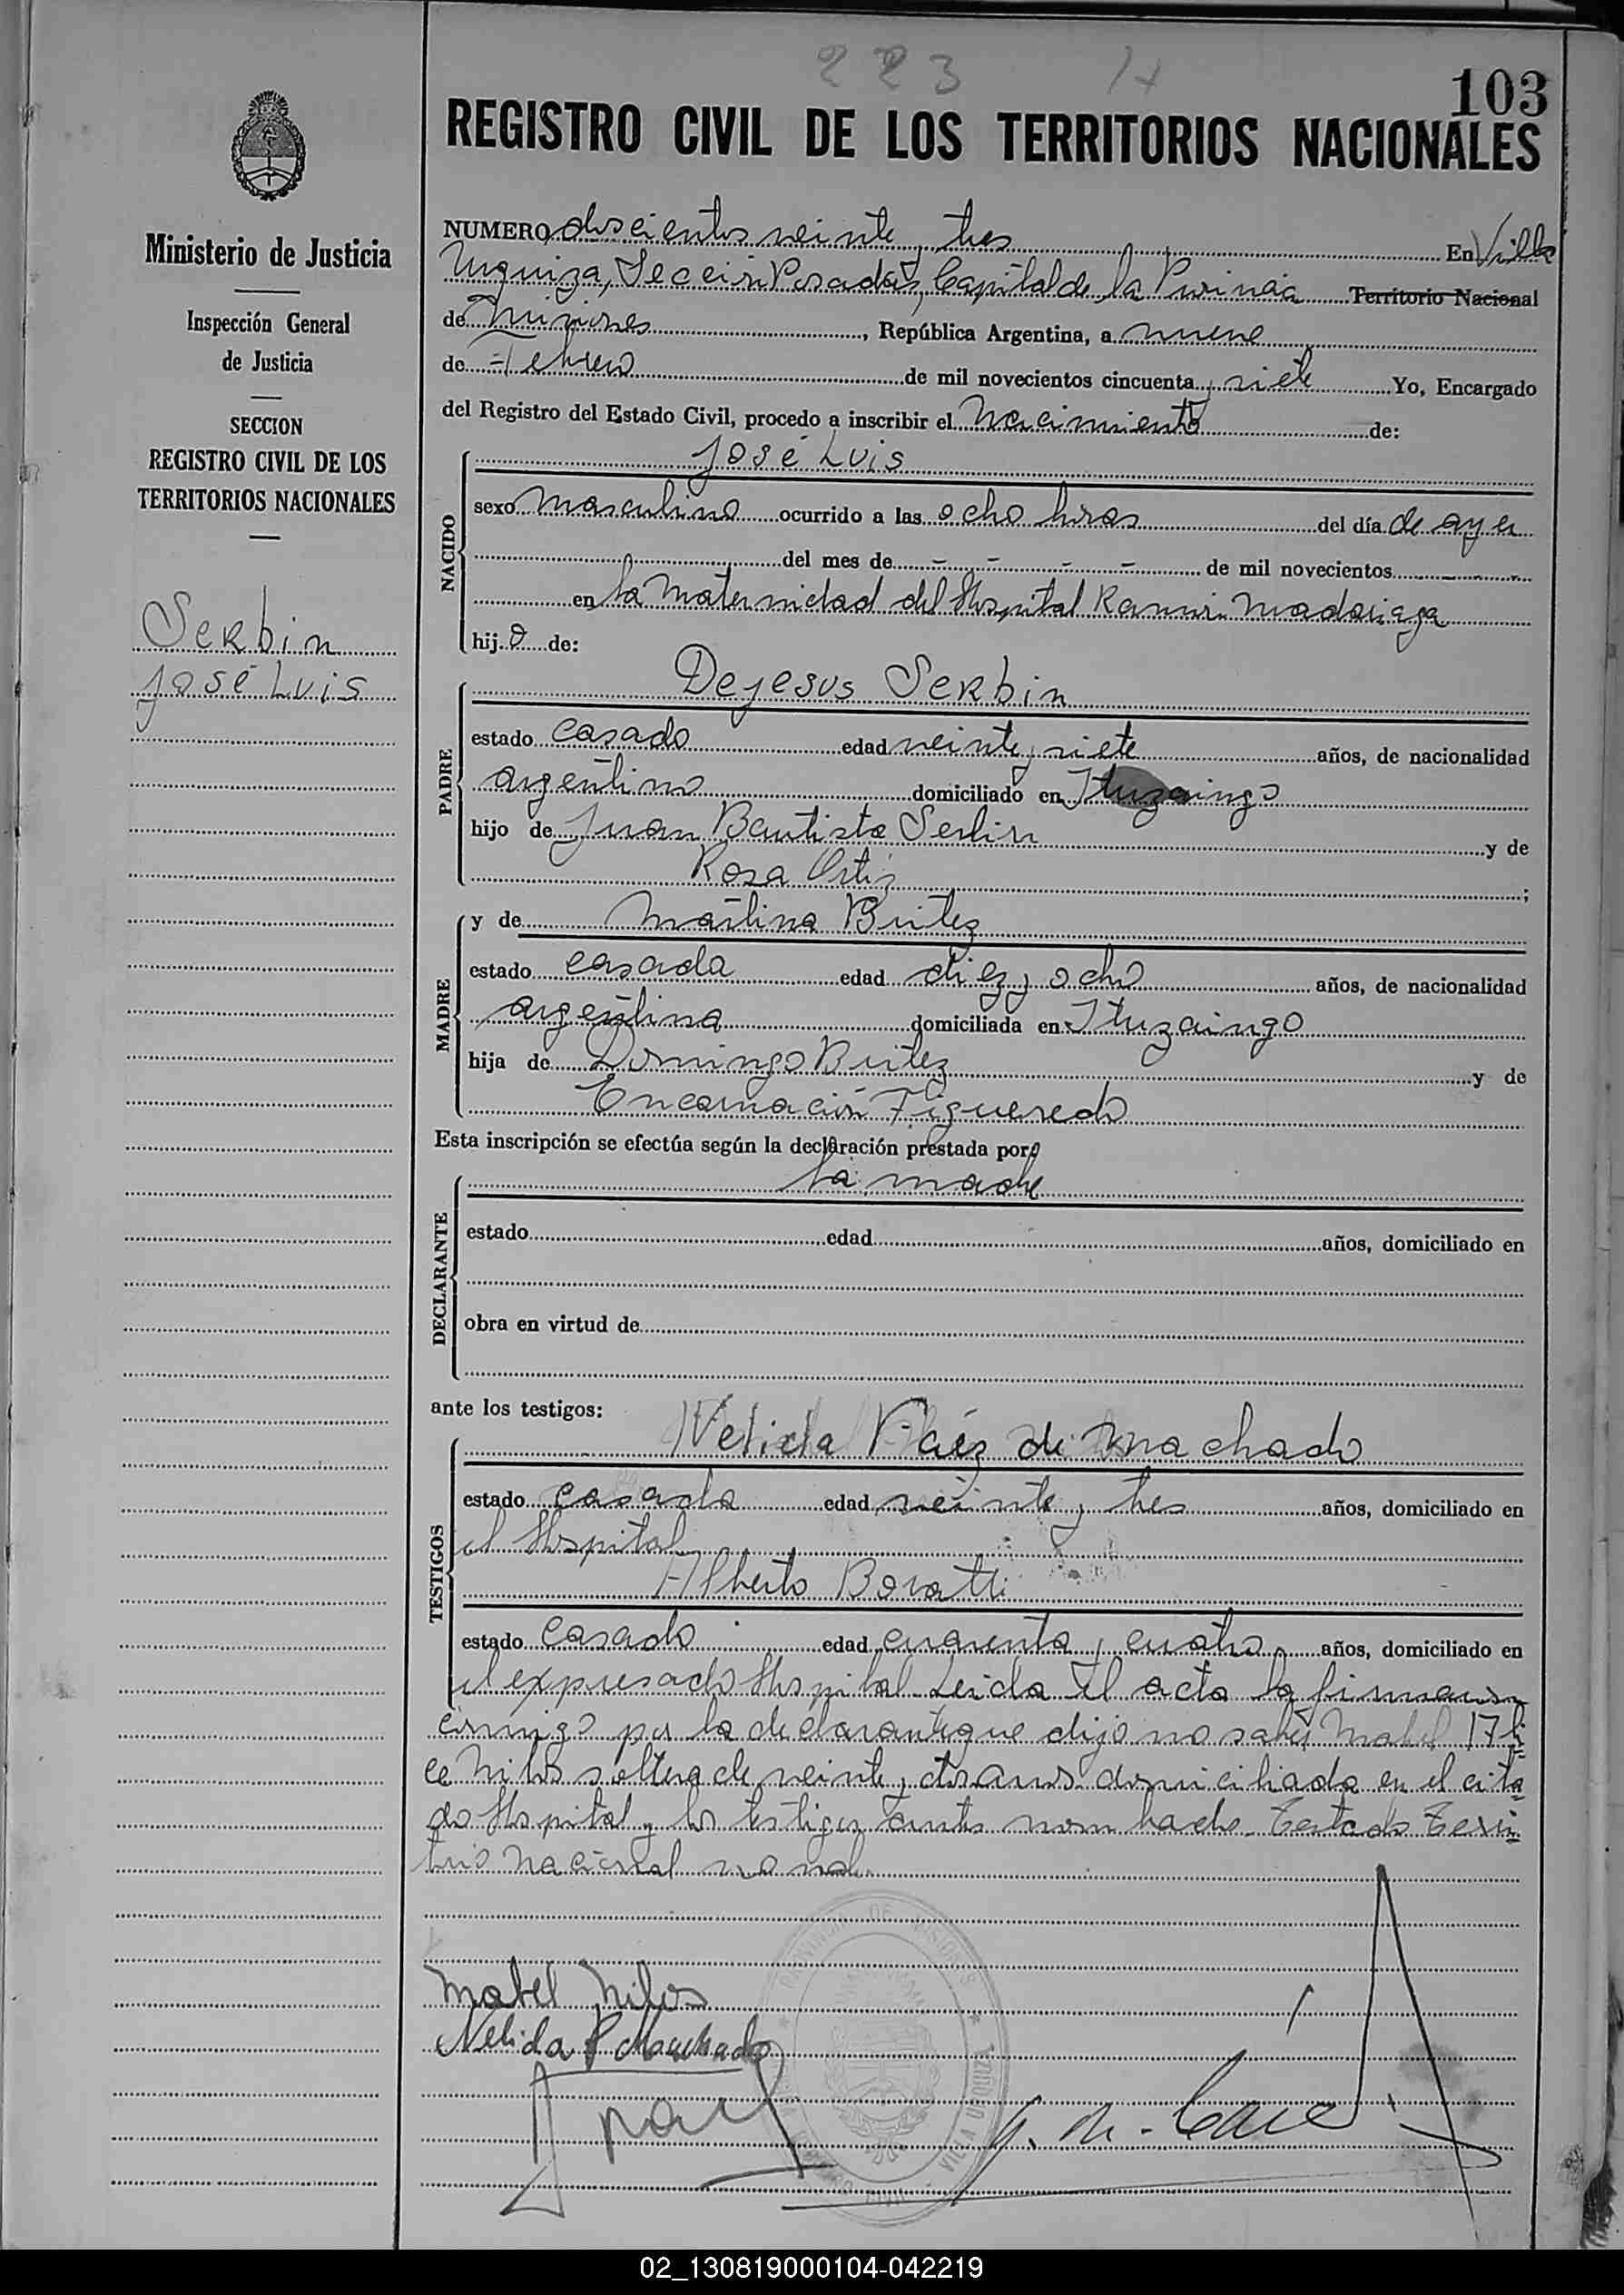 223
103
REGISTRO CIVIL DE LOS TERRITORIOS NACIONALES
Ministerio de Justicia
Inspección General
de Justicia
SECCION
REGISTRO CIVIL DE LOS
TERRITORIOS NACIONALES
Serbin
José Luis
NUMERO doscientos veinte y tres En Villa
Urquiza, Sección Posadas, Capital de la Provincia Territorio Nacional
de Misiones, República Argentina, a nueve
de Febrero de mil novecientos cincuenta y siete Yo, Encargado
del Registro del Estado Civil, procedo a inscribir el Nacimiento de:
José Luis
NACIDO
sexo masculino ocurrido a las ocho horas del día de ayer
del mes de - - - - de mil novecientos
en la Maternidad del Hospital Ramón Madariaga
hijo de:
Dejesus Serbin
PADRE
estado casado edad veinte y siete años, de nacionalidad
argentino domiciliado en Ituzaingo
hijo de Juan Bautista Serbin y de
Rosa Ortiz ;
y de Martina Britez
MADRE
estado casada edad diez y ocho años, de nacionalidad
argentina domiciliada en Ituzaingo
hija de Domingo Britez y de
Encarnación Figueredo
Esta inscripción se efectúa según la declaración prestada por:
la madre
DECLARANTE
estado edad años, domiciliado en
obra en virtud de
ante los testigos:
Nelida Páez de Machado
TESTIGOS
estado casada edad veinte y tres años, domiciliado en
el Hospital
Alberto
estado casado edad cuarenta y cuatro años, domiciliado en
el expresado Hospital Leida el acta la firmaron
conmigo por la declarante que dijo no saber Mabel
Milos soltera de veinte y dos años domiciliada en el cita
do Hospital y los testigos antes nombrados Testado Terri
torio Nacional no vale
Mabel Milos
Nelida P Machado
PROVINCIA DE MISIONES
VILLA URQUIZA
02_130819000104-042219